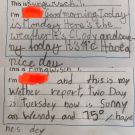 This is
I'm good morning today
is Monday Here's the
weather it's and
my today it's 19°C Have a
nice day
This is English
I'm and this is my
Wether report, two Day
is Tuesday how is Sunny
an Wendy and 15° have
he's dey